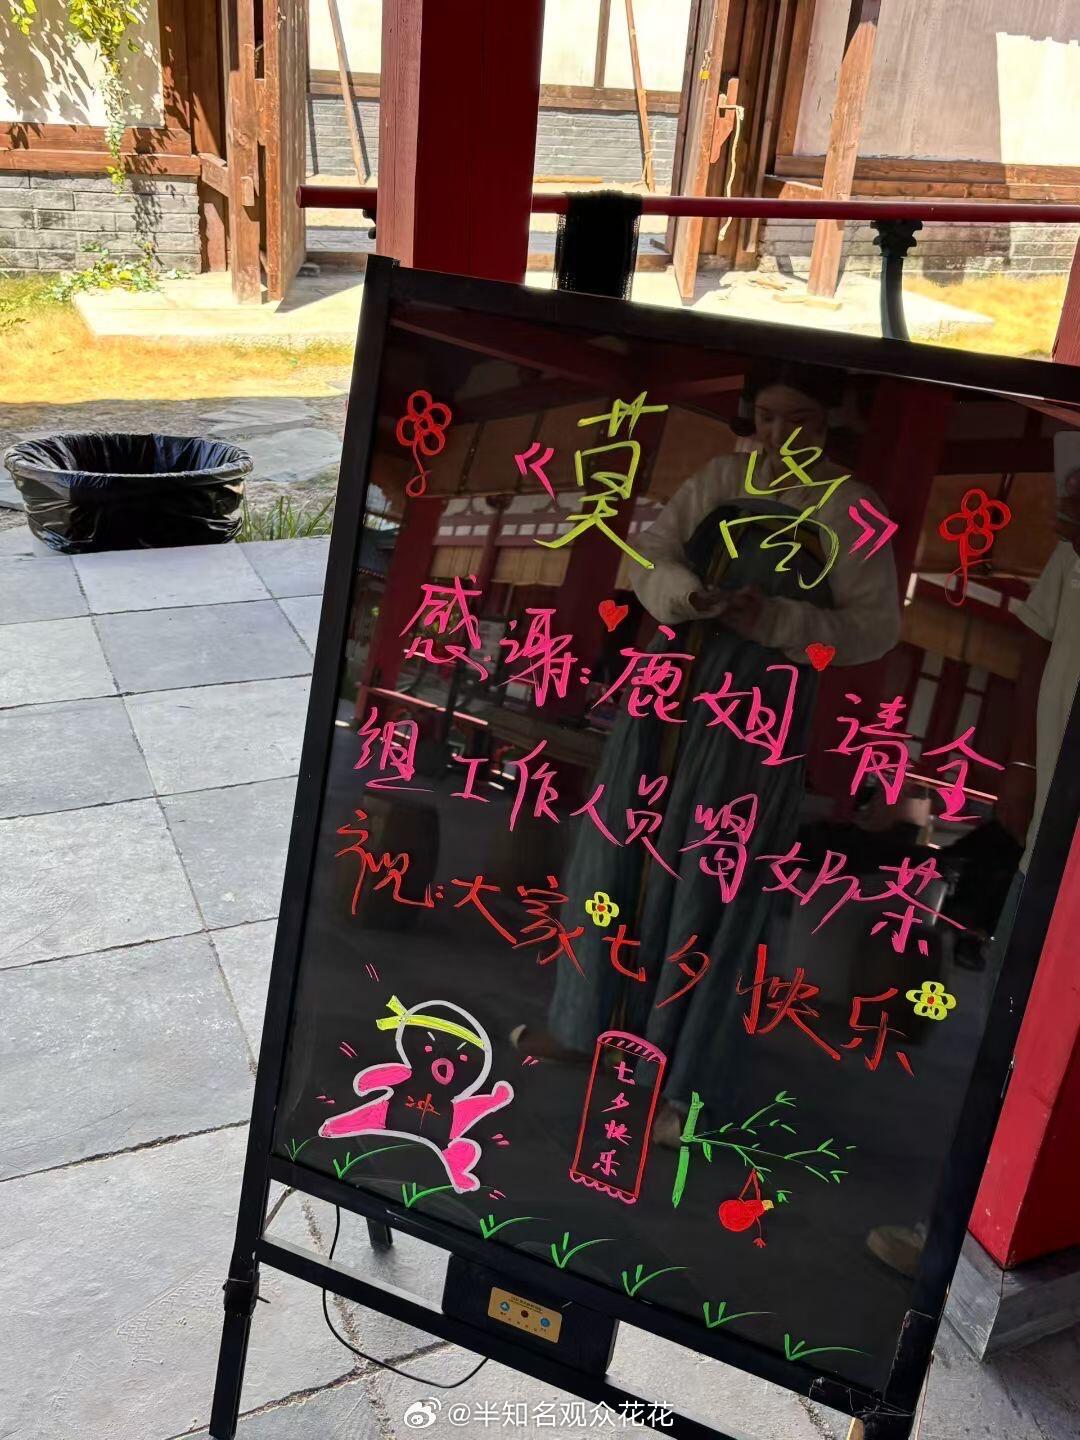 《莫离》
感谢:鹿姐请全
组工作人员喝奶茶
祝:大家七夕快乐
冲
七夕快乐
@半知名观众花花